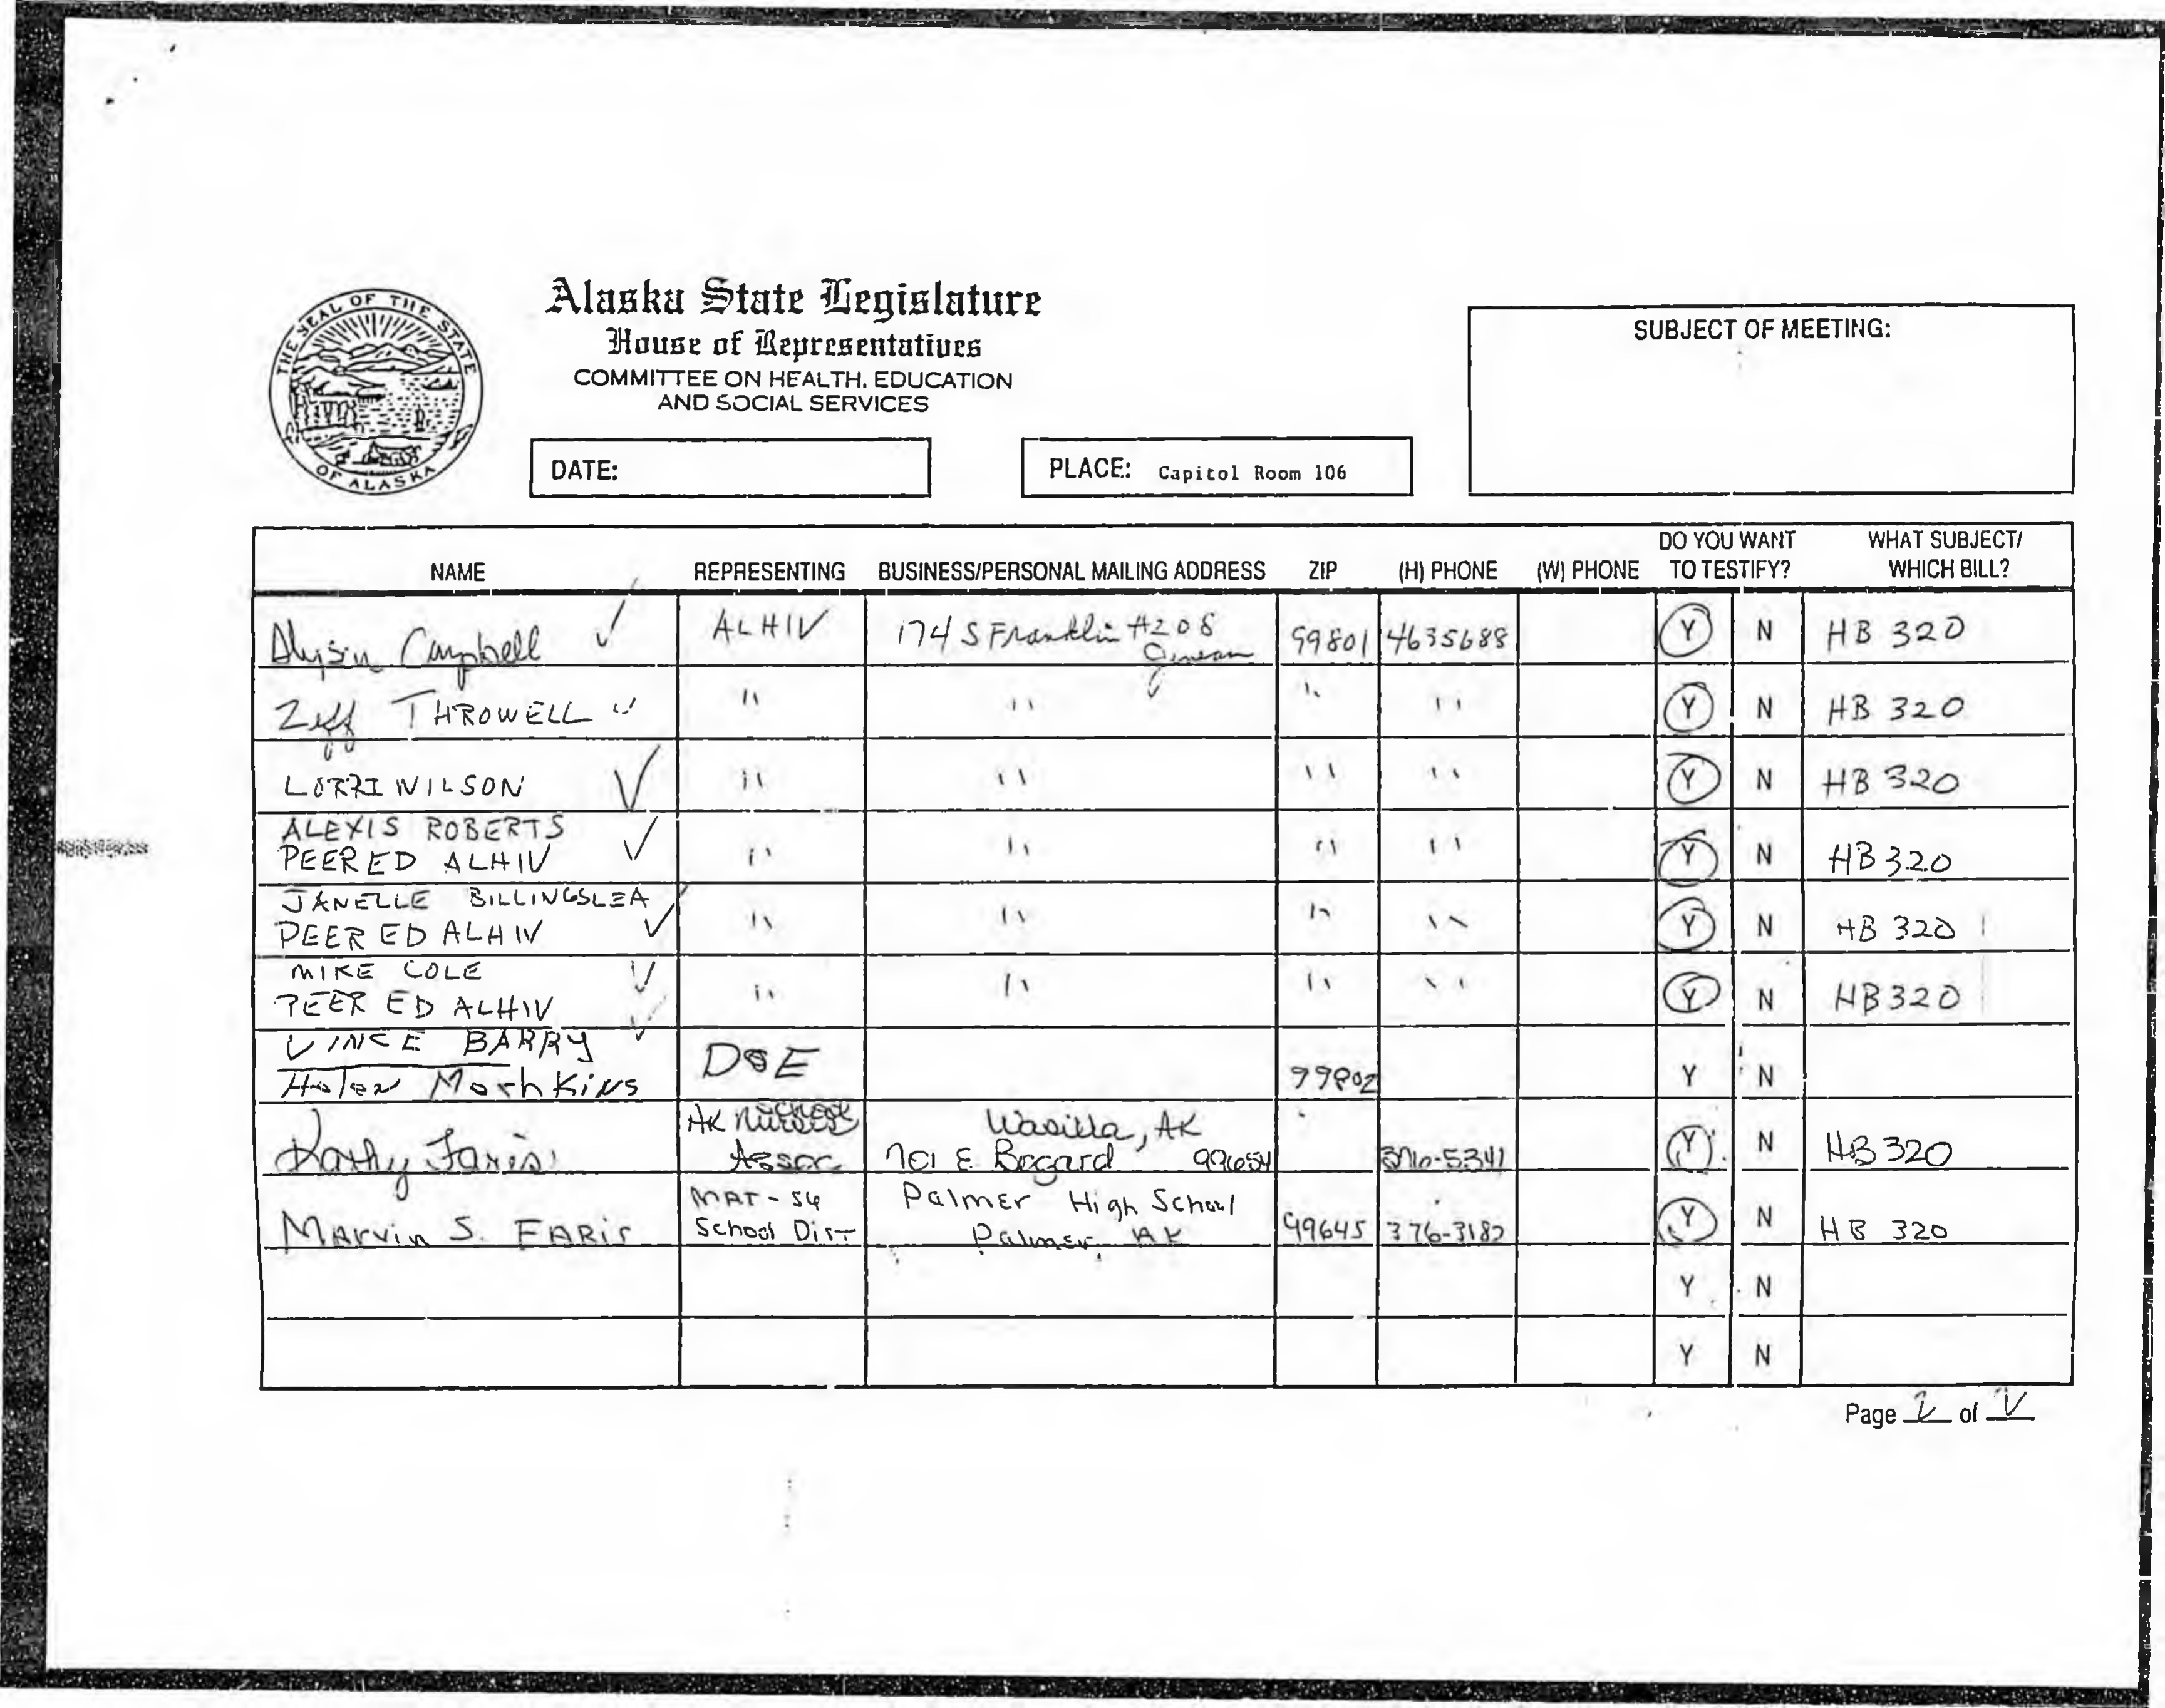 THE SEAL OF THE STATE OF ALASKA
Alaska State Legislature
House of Representatives
COMMITTEE ON HEALTH, EDUCATION
AND SOCIAL SERVICES
SUBJECT OF MEETING:
DATE:
PLACE: Capitol Room 106
NAME REPRESENTING BUSINESS/PERSONAL MAILING ADDRESS ZIP (H) PHONE (W) PHONE DO YOU WANT TO TESTIFY? WHAT SUBJECT/ WHICH BILL?
Alyson Campbell ✓ ALHIV 174 S Franklin #208 Juneau 99801 4635688 Y N HB 320
Zeff THROWELL ✓ " " " " Y N HB 320
LORRI WILSON ✓ " " " " Y N HB 320
ALEXIS ROBERTS
PEER ED ALHIV ✓ " " " " Y N HB 320
JANELLE BILLINGSLEA
PEER ED ALHIV ✓ " " " " Y N HB 320
MIKE COLE
PEER ED ALHIV ✓ " " " " Y N HB 320
VINCE BARRY ✓
Helen DOE 99802 Y N
Kathy Faris AK School Nurses Assoc. Wasilla, AK
701 E Bogard 99654 376-5341 Y N HB 320
Marvin S. FARIS MAT-SU School Dist Palmer High School
Palmer, AK 99645 376-3182 Y N HB 320
Y N
Y N
Page 2 of 2